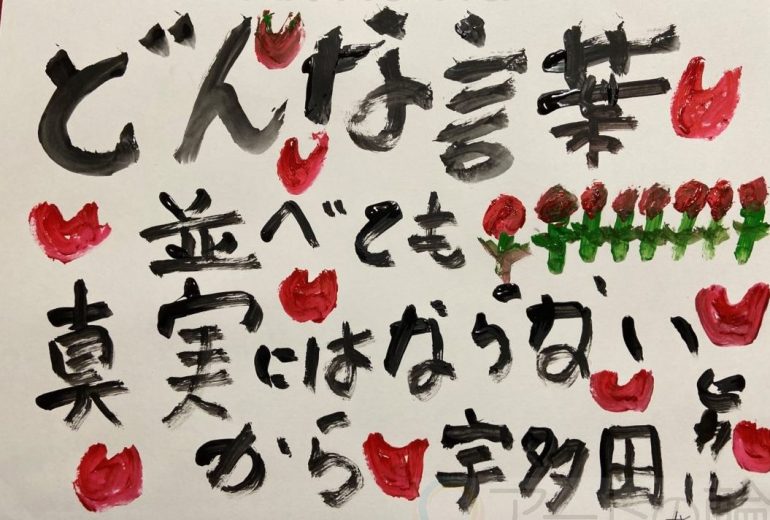 どんな言葉
並べても
真実にはならない
から 宇多田
アートの輪